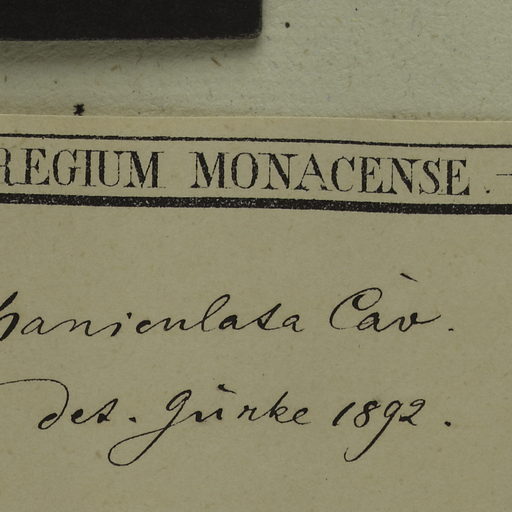 REGIUM MONACENSE. —
paniculata Cav.
det. Gürke 1892.